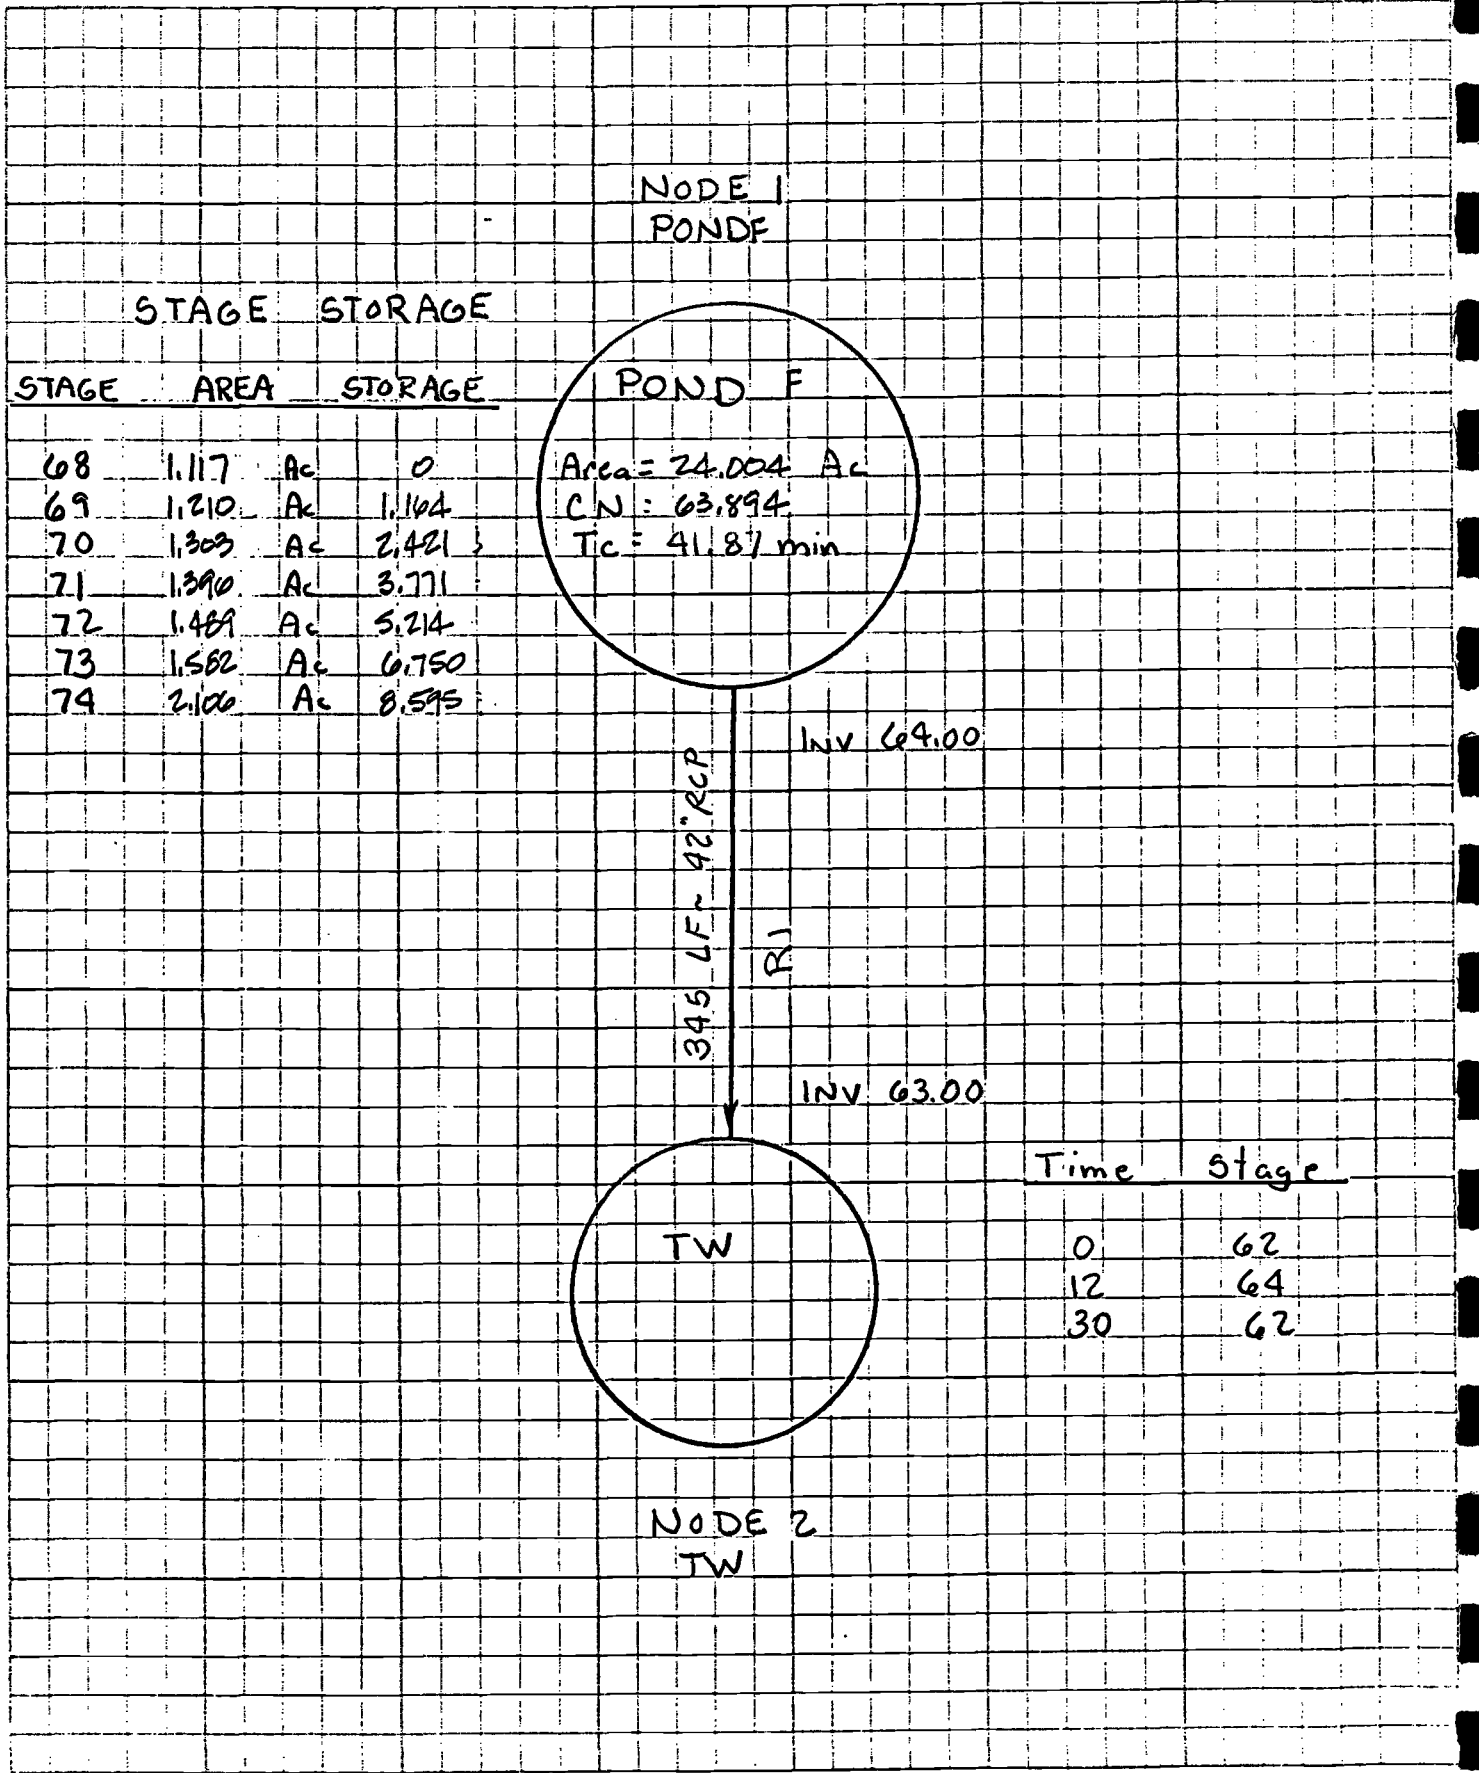 NODE 1
PONDF
STAGE STORAGE
STAGE AREA STORAGE
68 1.117 Ac 0
69 1.210 Ac 1.164
70 1.303 Ac 2.421
71 1.396 Ac 3.771
72 1.489 Ac 5.214
73 1.582 Ac 6.750
74 2.106 Ac 8.595
POND F
Area = 24.004 Ac
CN = 63.894
Tc = 41.87 min
INV 64.00
345 LF ~ 42" RCP
R1
INV 63.00
TW
Time Stage
0 62
12 64
30 62
NODE 2
TW